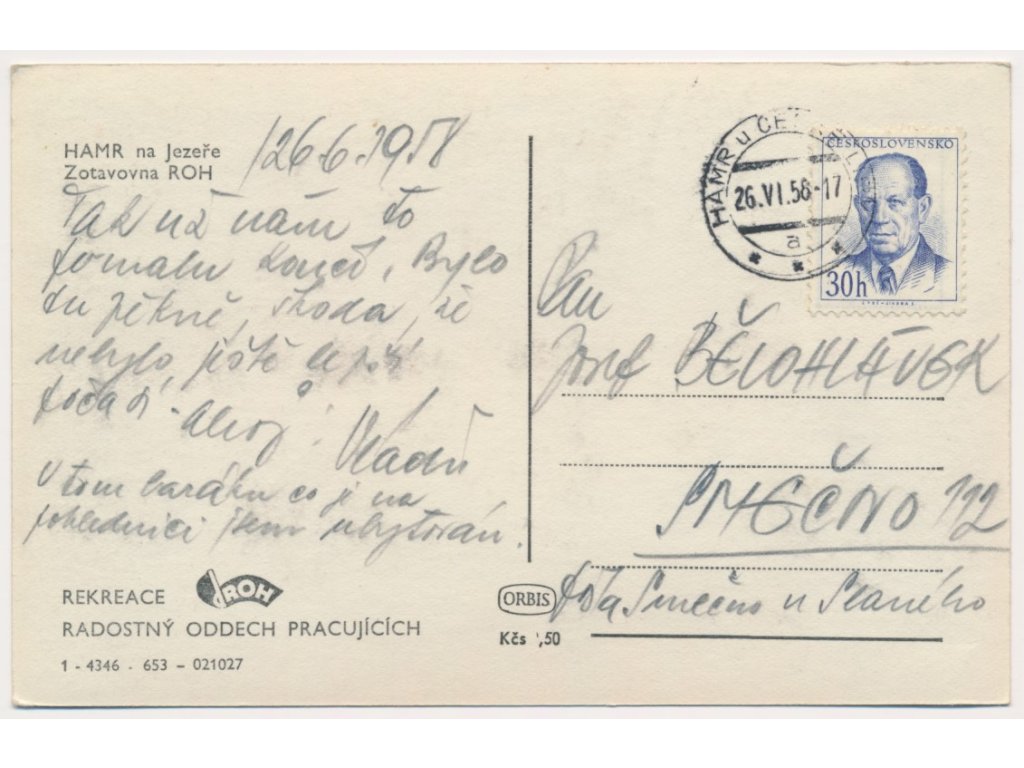 HAMR na Jezeře
Zotavovna ROH
26.6.1958
Tak už nám to
pomalu končí. Bylo
tu pěkně, škoda, že
nebylo ještě lepší
počasí. Ahoj!
V tom baráku co je na
pohlednici jsem ubytován.
REKREACE ROH
RADOSTNÝ ODDECH PRACUJÍCÍCH
1 - 4346 - 653 - 021027
HAMR u ČE
26.VI.58-17
a
ČESKOSLOVENSKO
30h
Pan
Josef BĚLOHLÁVEK
SMEČNO 112
pošta Smečno u Slaného
ORBIS
Kčs ,50